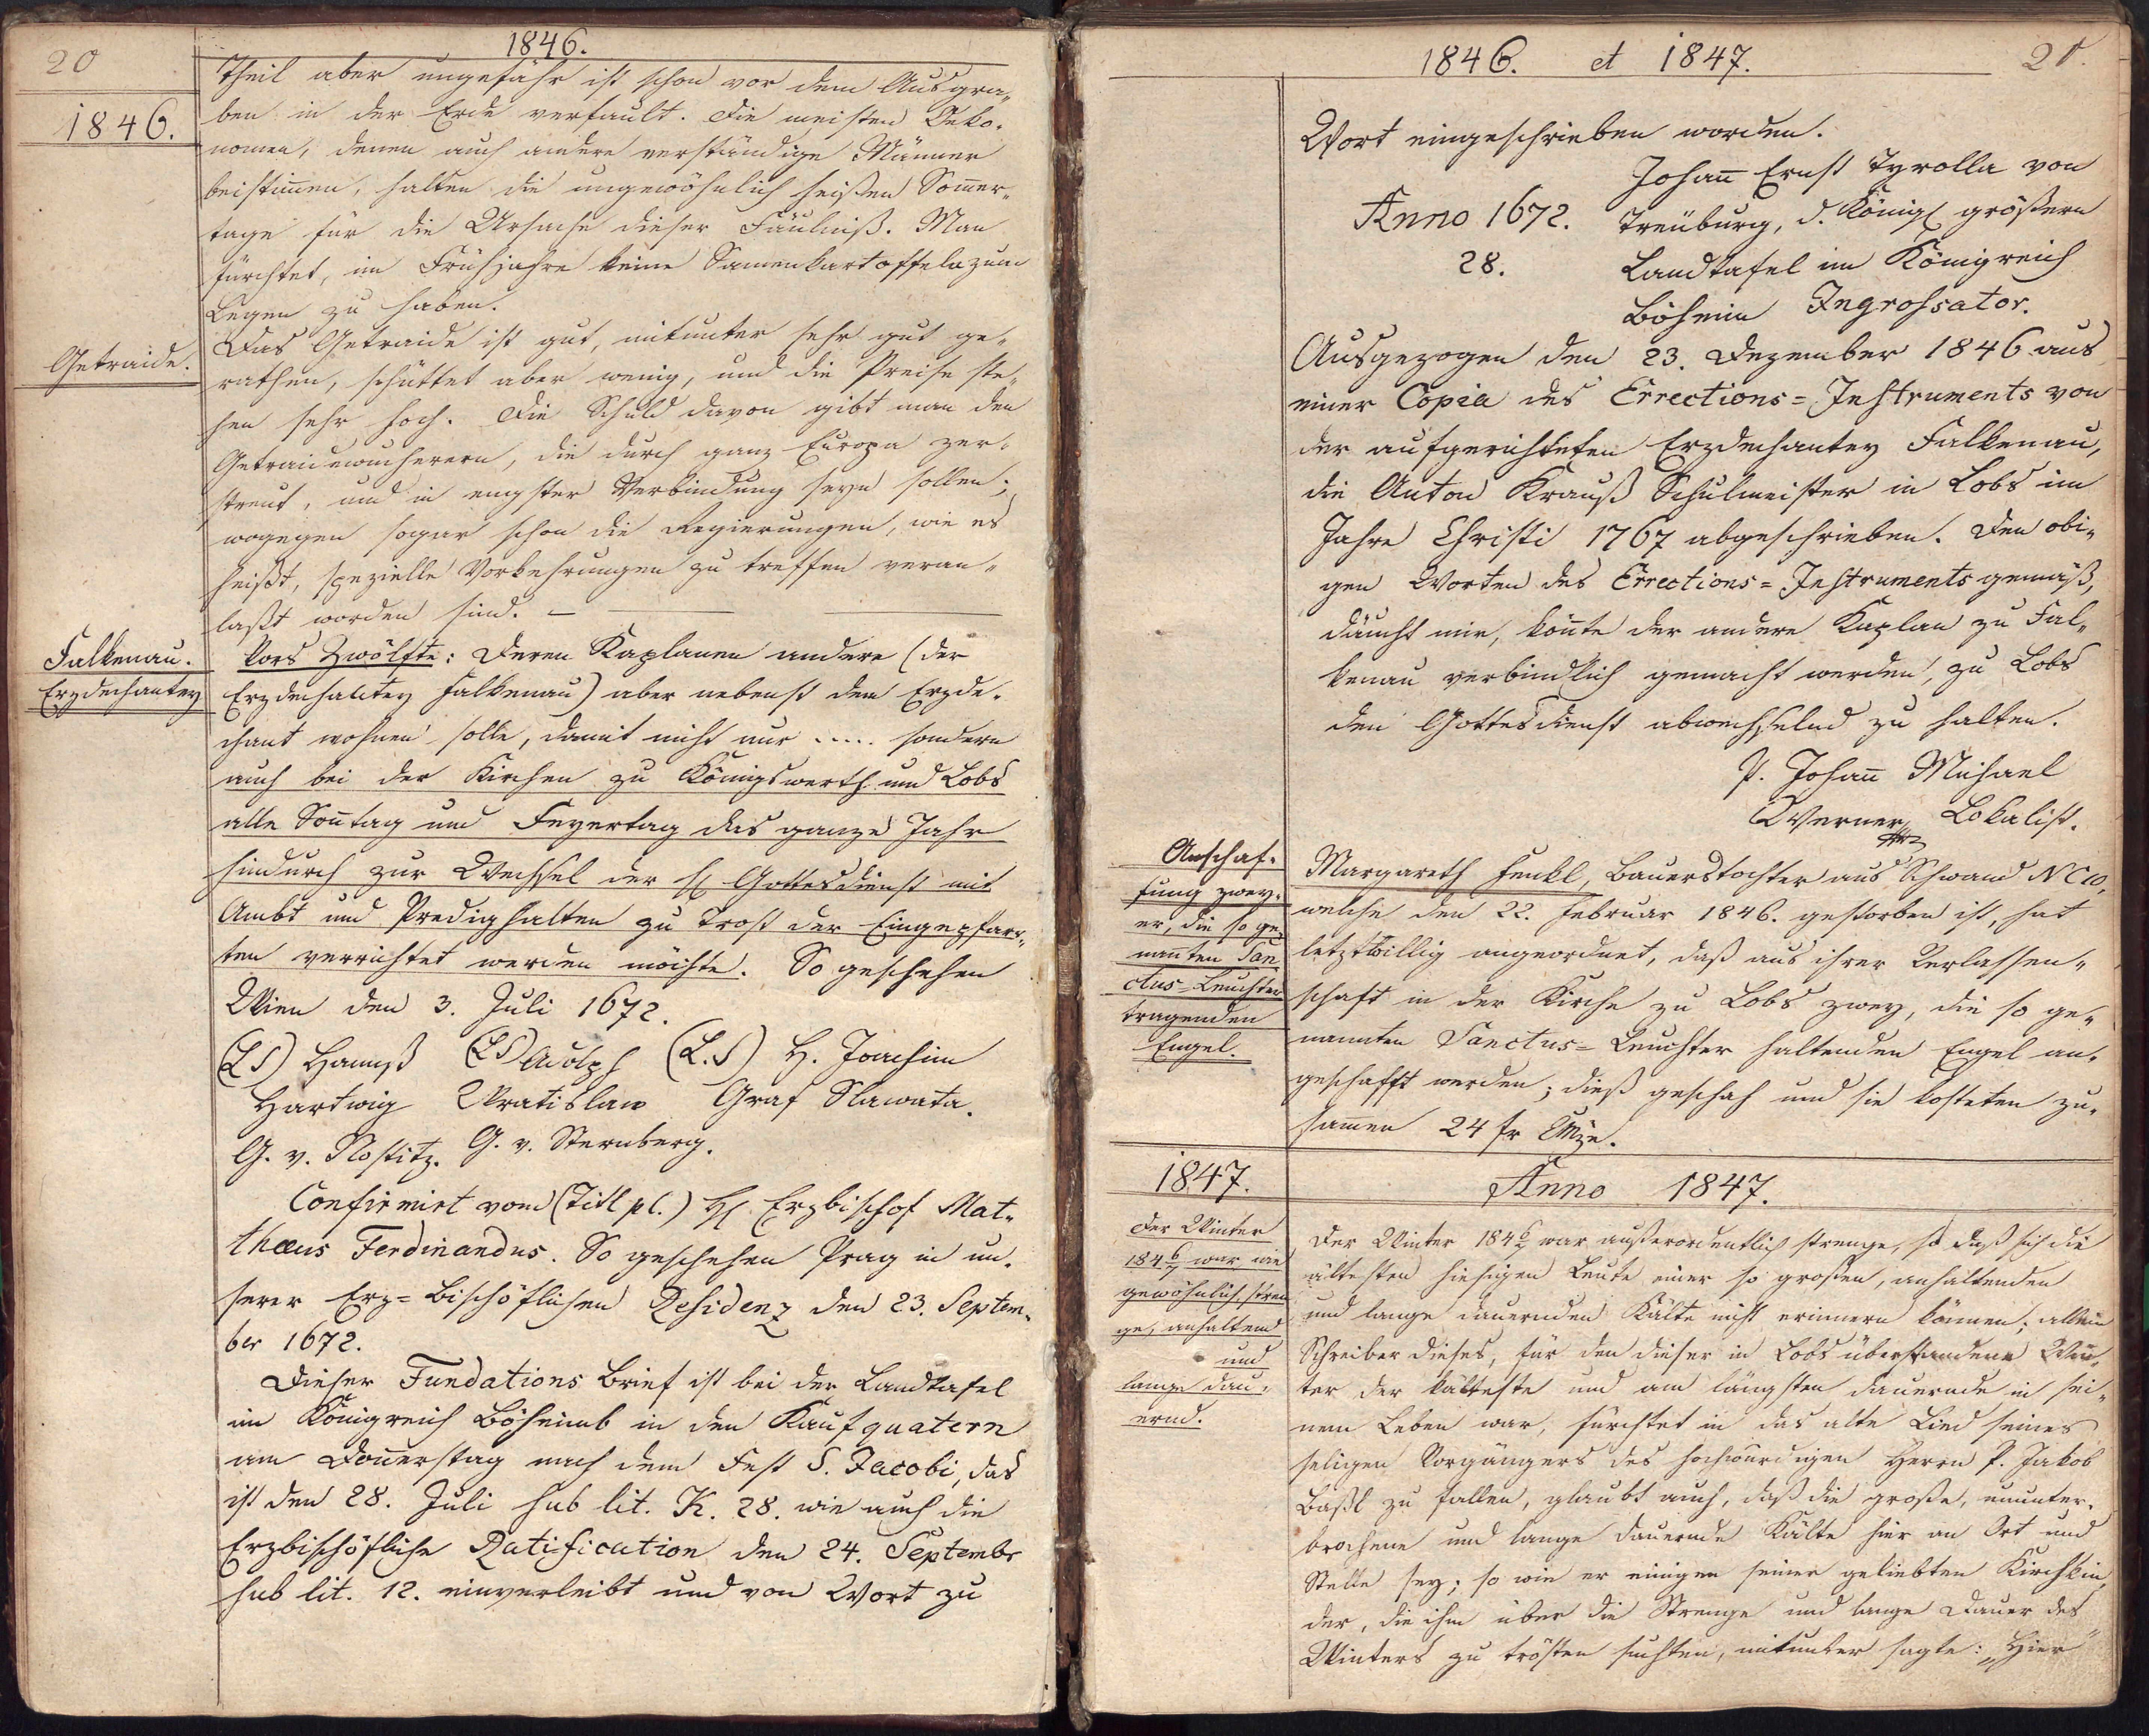 20
1846.
1846.
Theil aber ungefähr ist schon vor dem Ausgra„
ben in der Erde verfault. Die meisten Oeko„
nomen, denen auch andere verständige Männer
beistimen, halten die ungewöhnlich heißen Somer„
tage für die Ursache dieser Fäulniß. Man
fürchtet, im Frühjahre keine Samenkartoffeln zum
Legen zu haben.
Getraide.
Das Getraide ist gut, mitunter sehr gut ge„
rathen, schüttet aber wenig, und die Preise ste„
hen sehr hoch. Die Schuld davon gibt man den
Getraidewucherern, die durch ganz Europa zer„
streut, und in engster Verbindung seyn sollen;
wogegen sogar schon die Regierungen, wie es
heißt, spezielle Vorkehrungen zu treffen veran„
laßt worden sind. —
Falkenau.
Erzdechantey
Vors Zwölfte: Deren Kaplanen andere (der
Erzdechantey Falkenau) aber nebenst dem Erzde„
chant wohnen solle, damit nicht nur ..... sondern
auch bei der Kirchen zu Königswerth und Lobs
alle Sontag und Feyertag das ganze Jahr
hindurch zur Wechsel der hl Gottesdienst mit
Ambt und Predighalten zu Trost der Eingepfarr„
ten verrichtet werden möchte. So geschehen
Wien den 3. Juli 1672.
(LS) Hannß (LS) Adolph (L.S) H. Joachim
Hartwig Wratislaw Graf Slawata.
G. v. Nostitz. G. v. Sternberg.
Confirmirt vom (Titl pl.) H. Erzbischof Mat„
thæus Ferdinandus. So geschehen Prag in un„
serer Erz=Bischöflichen Residenz den 23. Septem„
ber 1672.
Dieser Fundations Brief ist bei der Landtafel
im Königreich Böheimb in den Kaufquatern
am Donerstag nach dem Fest S. Jacobi, das
ist den 28. Juli sub lit. K. 28. wie auch die
Erzbischöfliche Ratification den 24. Septembr
sub lit. 12. einverleibt und von Wort zu
1846. et 1847.
21.
Wort eingeschrieben worden.
Johan Ernst Tyrolla von
Anno 1672. Treüburg, d. Königl größern
28. Landtafel im Königreich
Böheim Ingrossator.
Ausgezogen den 23. Dezember 1846 aus
einer Copia des Errections=Instruments von
der aufgerichteten Erzdechantey Falkenau,
die Anton Krauß Schulmeister in Lobs im
Jahre Christi 1767 abgeschrieben. Den obi„
gen Worten des Errections=Instruments gemäß,
däucht mir, könte der andere Kaplan zu Fal„
kenau verbindlich gemacht werden, zu Lobs
den Gottesdienst abwechselnd zu halten.
P. Johan Michael
Werner, Lokalist.
Anschaf„
fung zwey„
er, die so ge„
nannten San
ctus=Leuchter
tragenden
Engel.
Margareth Henkl, Bauerstochter aus Schwand NC 10,
welche den 22. Februar 1846. gestorben ist, hat
letztwillig angeordnet, daß aus ihrer Verlassen„
schaft in der Kirche zu Lobs zwey, die so ge„
nannten Sanctus=Leuchter haltenden Engel an„
geschafft werden; dieß geschah und sie kosteten zu„
samen 24 fr CMze.
1847.
Anno 1847.
Der Winter
184 6/7 war un
gewöhnlich stren
ge, anhaltend
und
lange dau„
ernd.
Der Winter 184 6/7 war außerordentlich strenge, so daß sich die
ältesten hiesigen Leute einer so großen, anhaltenden
und lange dauernden Kälte nicht erinnern können; allein
Schreiber dieses, für den dieser in Lobs überstandene Win„
ter der kälteste und am längsten dauernde in sei„
nem Leben war, fürchtet in das alte Lied seines
seligen Vorgängers des hochwürdigen Herrn P. Jakob
Baßl zu fallen, glaubt auch, daß die große, ununter„
brochene und lange dauernde Kälte hier an Ort und
Stelle sey; so wie er einigen seiner geliebten Kirchkin„
der, die ihn über die Strenge und lange Dauer des
Winters zu trösten suchten, mitunter sagte: „Hier